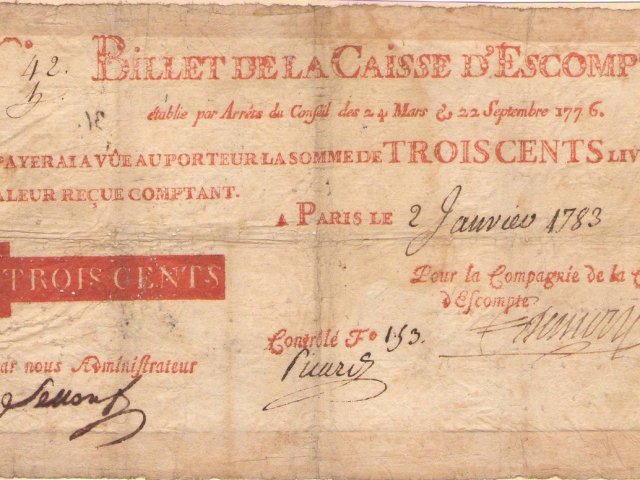 42. BILLET DE LA CAISSE D'ESCOMP
établie par Arrêts du Conseil des 24 Mars & 22 Septembre 1776.
PAYERAI A VÛE AU PORTEUR LA SOMME DE TROIS CENTS LIV
ALEUR REÇUE COMPTANT.
A PARIS LE 2 Janvier 1783
TROIS CENTS
Pour la Compagnie de la C
d'Escompte
Contrôlé Fo 153.
ar nous Administrateur
Picard